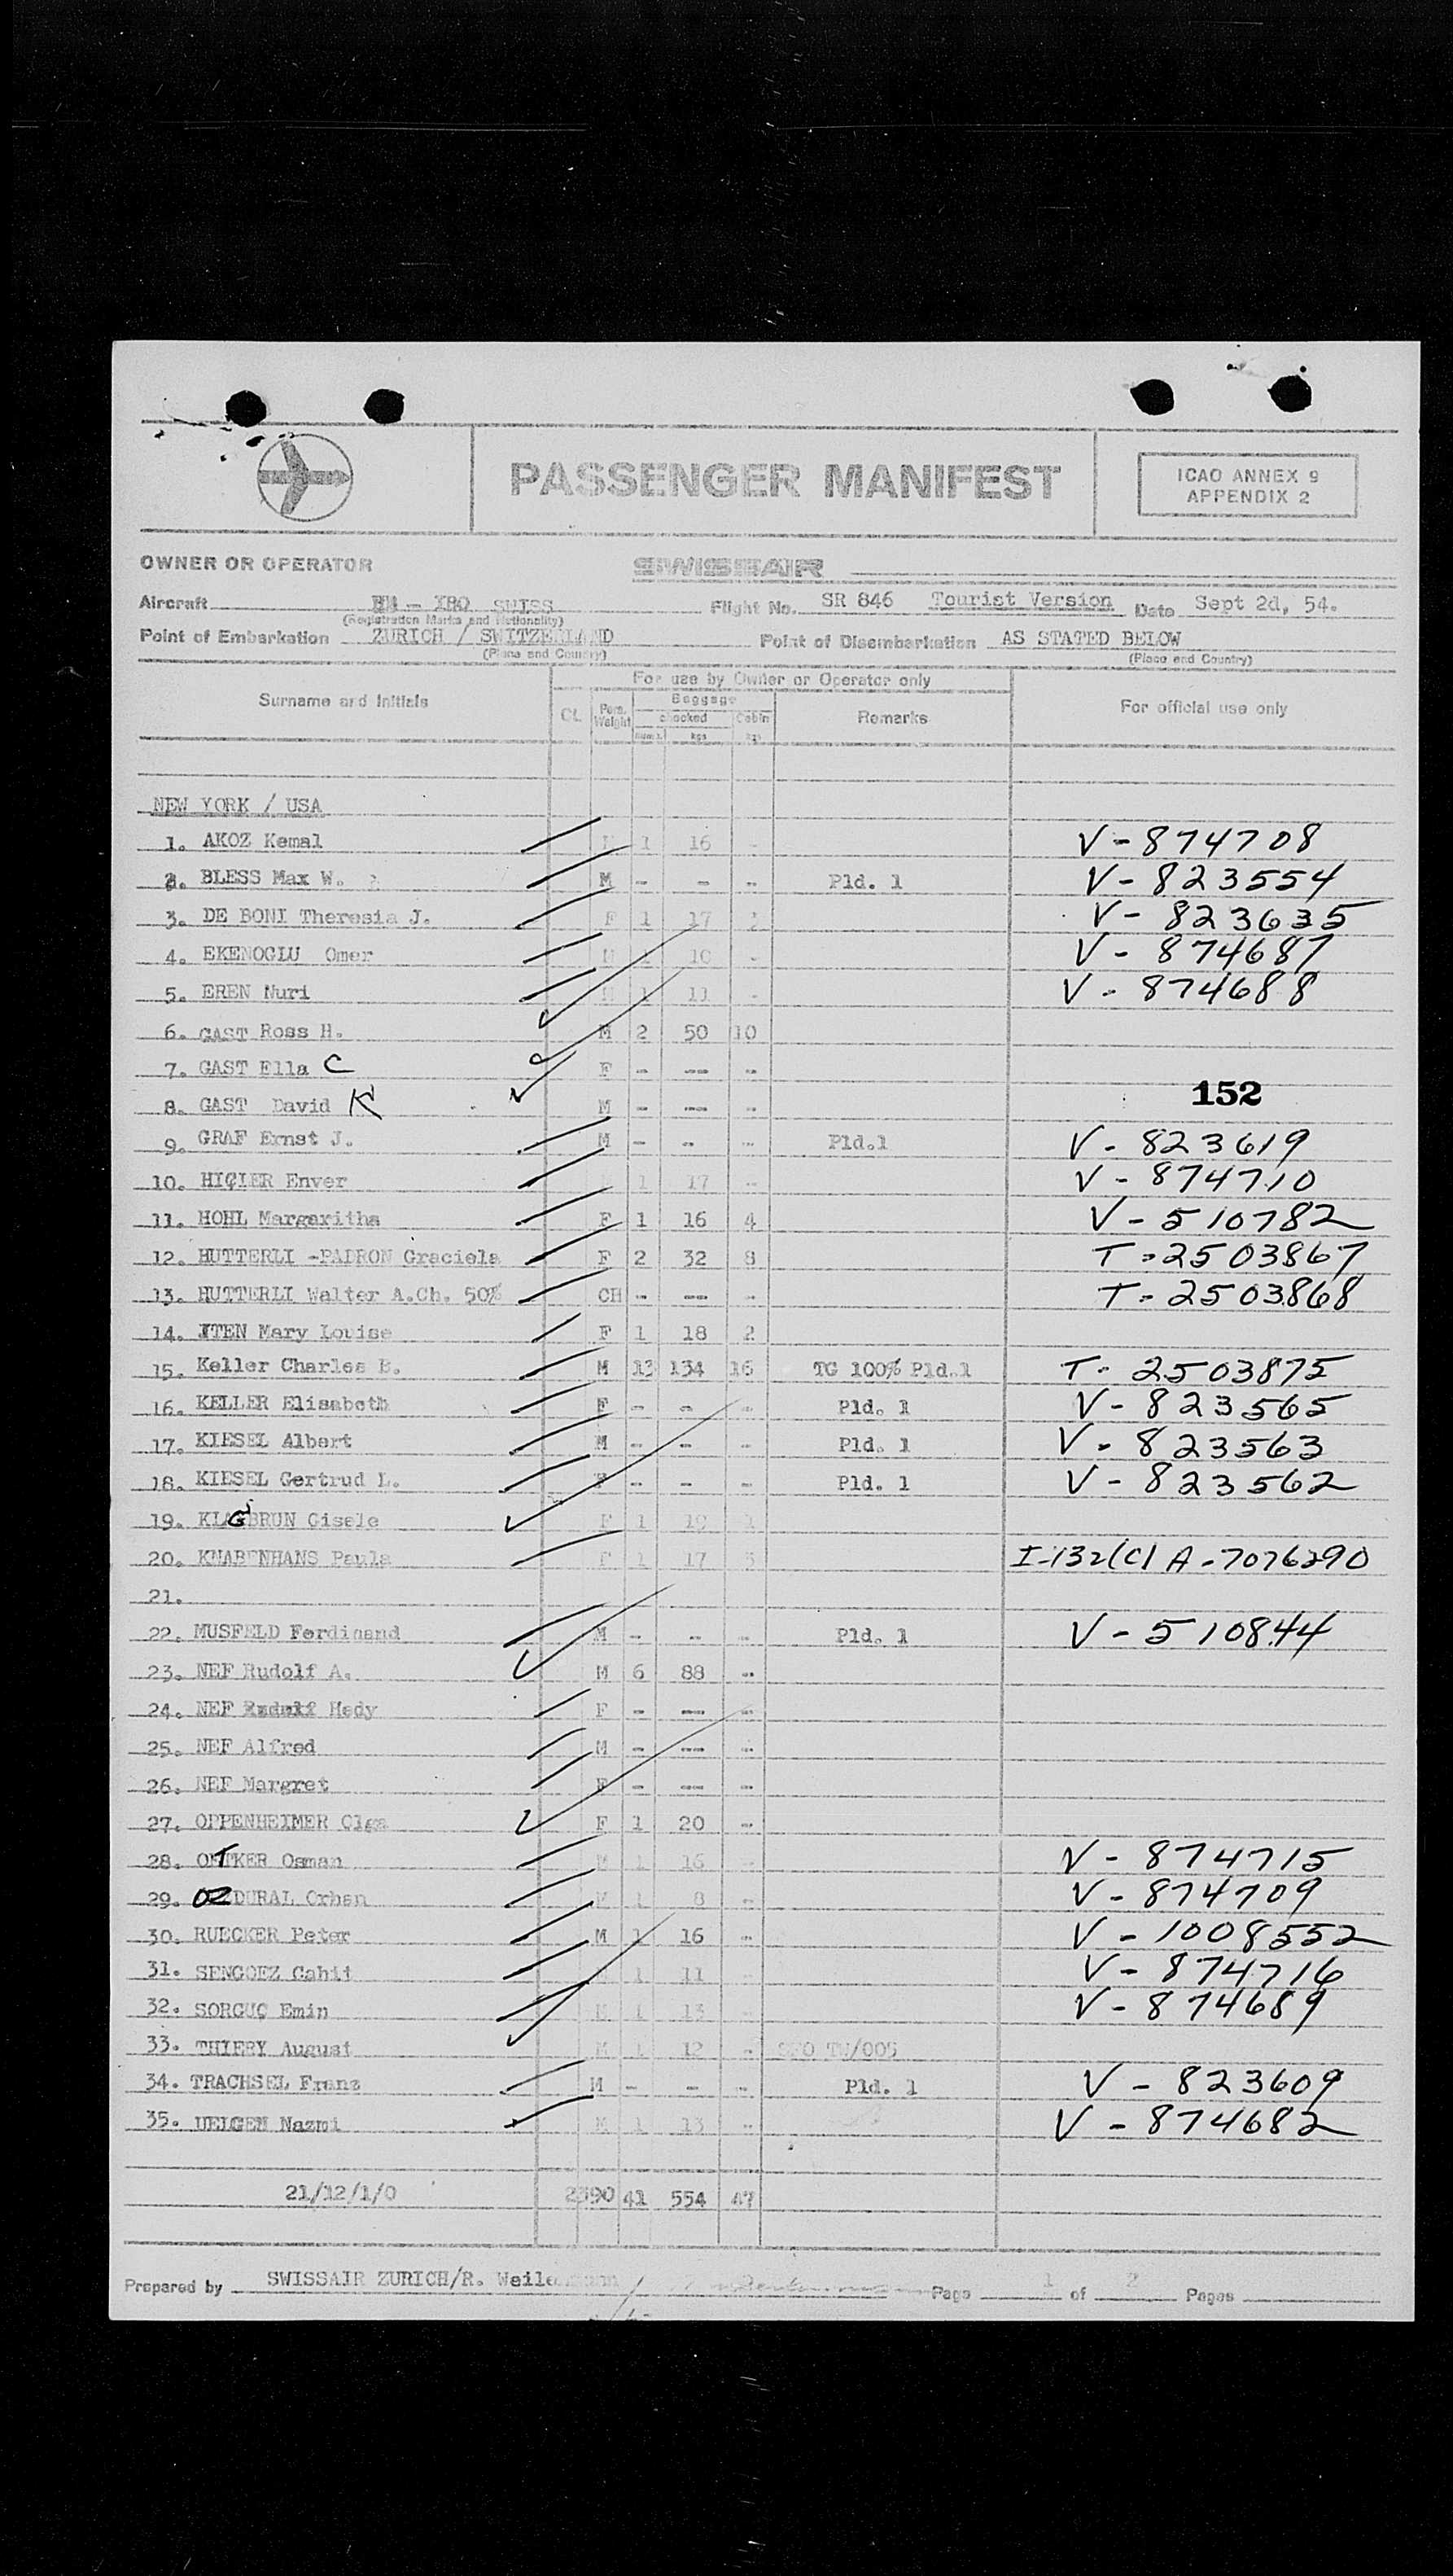 PASSENGER MANIFEST
ICAO ANNEX 9
APPENDIX 2
OWNER OR OPERATOR SWISSAIR
Aircraft - IBO SWISS Flight No. SR 846 Tourist Version Date Sept 2d, 54.
(Registration Marks and Nationality)
Point of Embarkation ZURICH / SWITZERLAND Point of Disembarkation AS STATED BELOW
(Place and Country) (Place and Country)
For use by Owner or Operator only
Surname and Initials CL Pers. Weight Baggage checked Cabin Remarks For official use only
kgs kgs
NEW YORK / USA
1. AKOZ Kemal 1 16 - V-874708
2. BLESS Max W. M - - - Pld. 1 V-823554
3. DE BONI Theresia J. F 1 17 2 V-823635
4. EKENOGLU Omer M 10 - V-874687
5. EREN Nuri M 1 11 - V-874688
6. GAST Ross H. M 2 50 10
7. GAST Ella C F - --- -
152
8. GAST David K M - --- -
9. GRAF Ernst J. M - - - Pld.1 V-823619
10. HIÇIER Enver 1 17 - V-874710
11. HOHL Margaritha F 1 16 4 V-510782
12. HUTTERLI -PADRON Graciela F 2 32 8 T-2503867
13. HUTTERLI Walter A.Ch. 50% CH - --- - T-2503868
14. ITEN Mary Louise F 1 18 2
15. Keller Charles B. M 13 134 16 TG 100% Pld.1 T-2503875
16. KELLER Elisabeth F - - - Pld. 1 V-823565
17. KIESEL Albert M - - - Pld. 1 V-823563
18. KIESEL Gertrud L. F - - - Pld. 1 V-823562
19. KLAGSBRUN Gisele F 1 19 1
20. KNABENHANS Paula F 1 17 3 I-132(C) A-7076290
21.
22. MUSFELD Ferdinand M - - - Pld. 1 V-510844
23. NEF Rudolf A. M 6 88 -
24. NEF Hedy F - --- -
25. NEF Alfred M - --- -
26. NEF Margret F - --- -
27. OPPENHEIMER Olga F 1 20 -
28. OKTKER Osman M 1 16 V-874715
29. OZDURAL Orhan M 1 8 - V-874709
30. RUECKER Peter M 1 16 - V-1008552
31. SENGOEZ Cahit 1 11 - V-874716
32. SORGUÇ Emin M 1 13 - V-874689
33. THIERY August M 1 12 - SFO TW/005
34. TRACHSEL Franz M - - - Pld. 1 V-823609
35. UELGEN Nazmi M 1 13 - V-874682
21/12/1/0 2390 41 554 47
Prepared by SWISSAIR ZURICH/R. Page 1 of 2 Pages